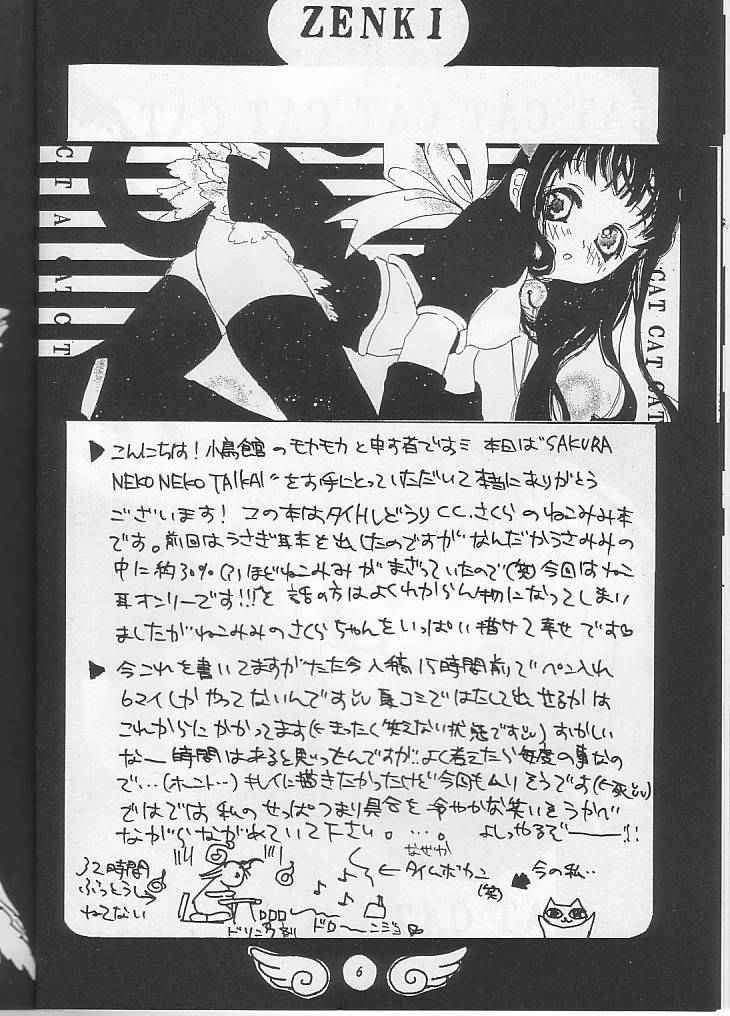 ZENKI
CAT CAT CAT
▶こんにちは!小鳥館のモカモカと申す者ですミ 本日は"SAKURA
NEKO NEKO TAIKAI"をお手にとっていただいて本当にありがとう
ございます! この本はタイトルどうりC.C.さくらのねこみみ本
です。前回はうさぎ耳本を出したのですがなんだかうさみみの
中に約30%(?)ほどねこみみがまざっていたので(笑)今回はねこ
耳オンリーです!!! と 話の方はよくわからん物になってしまい
ましたがねこみみのさくらちゃんをいっぱい描けて幸せです
▶今これを書いてますがただ今入稿15時間前でペン入れ
6マイしかやってないんです 夏コミではたして出せるかは
これからにかかってます(←まったく笑えない状態です)おかしい
なー時間はあると思ったんですが‥よく考えたら毎度の事なの
で…(ホント…)キレイに描きたかったけど今回もムリそうです(←死)
ではでは私のせっぱつまり具合を冷ややかな笑いをうかべ
ながらながめていて下さい。…。よしっやるぞーーー!!
32時間
ぶっとうし
ねてない
なぜか
←タイムボカン
(笑)
今の私‥
ドロー
6